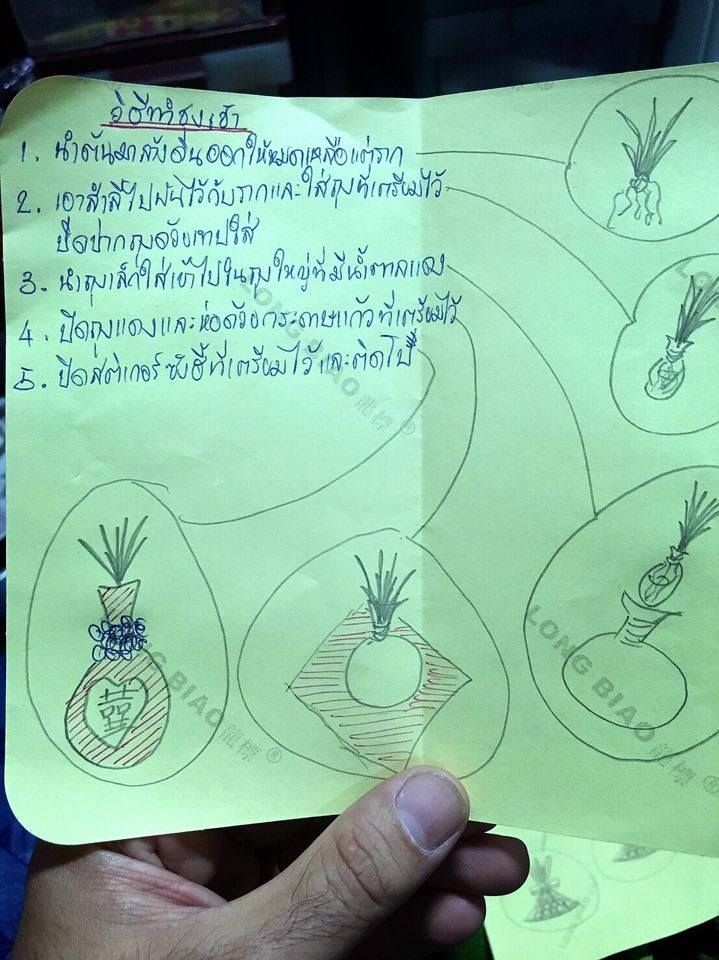 วิธีทำชุงเช้า
1. นำต้นมาล้างดินออกให้หมดเหลือแต่ราก
2. เอาสำลีไปพันไว้กับรากและใส่ถุงที่เตรียมไว้
ปิดปากถุงด้วยเทปใส
3. นำถุงเล็กใส่เข้าไปในถุงใหญ่ที่มีน้ำตาลแดง
4. ปิดถุงแดงและห่อด้วยกระดาษแก้วที่เตรียมไว้
5. ปิดสติเกอร์ซังฮี้ที่เตรียมไว้และติดโบว์
LONG BIAO 龍標 ®
LONG BIAO 龍標 ®
LONG BIAO 龍標 ®
囍